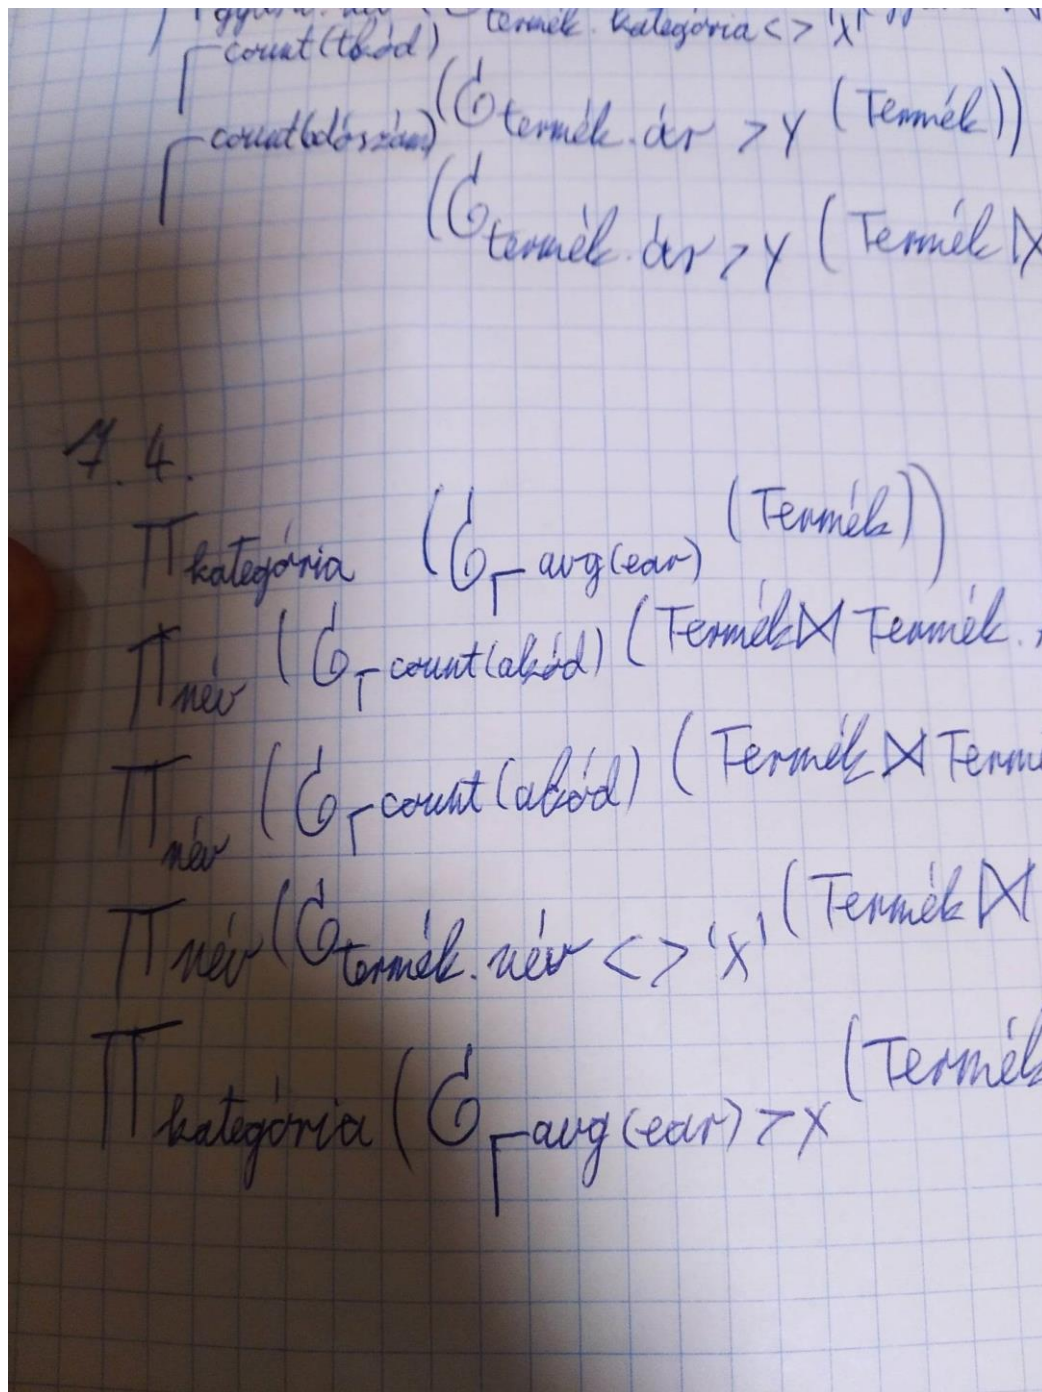 termék.kategória <> 'x'
Γ count(tkód) (σ termék.ár > y (Termék))
Γ count(adószám) (σ termék.ár > y (Termék ⋈
7.4.
π kategória (σ Γ avg(ear) (Termék))
π név (σ Γ count(akód) (Termék ⋈ Termék.
π név (σ Γ count(akód) (Termék ⋈ Termé
π név (σ termék.név <> 'x' (Termék ⋈
π kategória (σ Γ avg(ear) > x (Termék